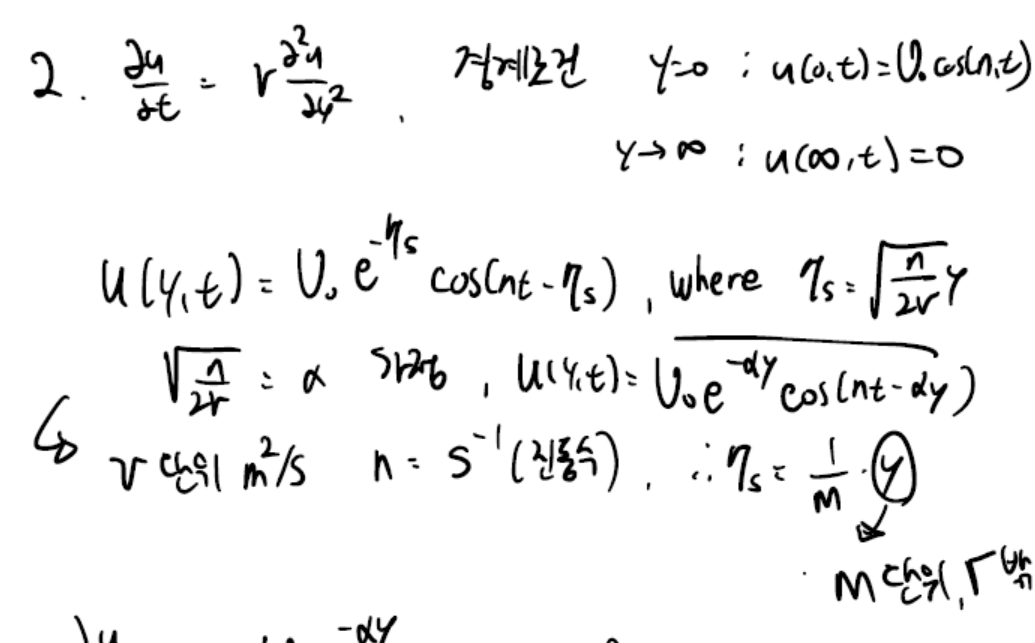 2. ∂u/∂t = ν ∂²u/∂y², 경계조건 y=0 : u(0,t)=U₀ cos(n,t)
y→∞ : u(∞,t)=0
u(y,t) = U₀ e^{-η_s} cos(nt-η_s), where η_s = √(n/2ν) y
√(n/2ν) = α 치환, u(y,t) = U₀e^{-αy} cos(nt-αy)
↳ ν 단위 m²/s n = s⁻¹ (진동수). ∴ η_s = 1/m · y
m 단위,
e^{-αy}